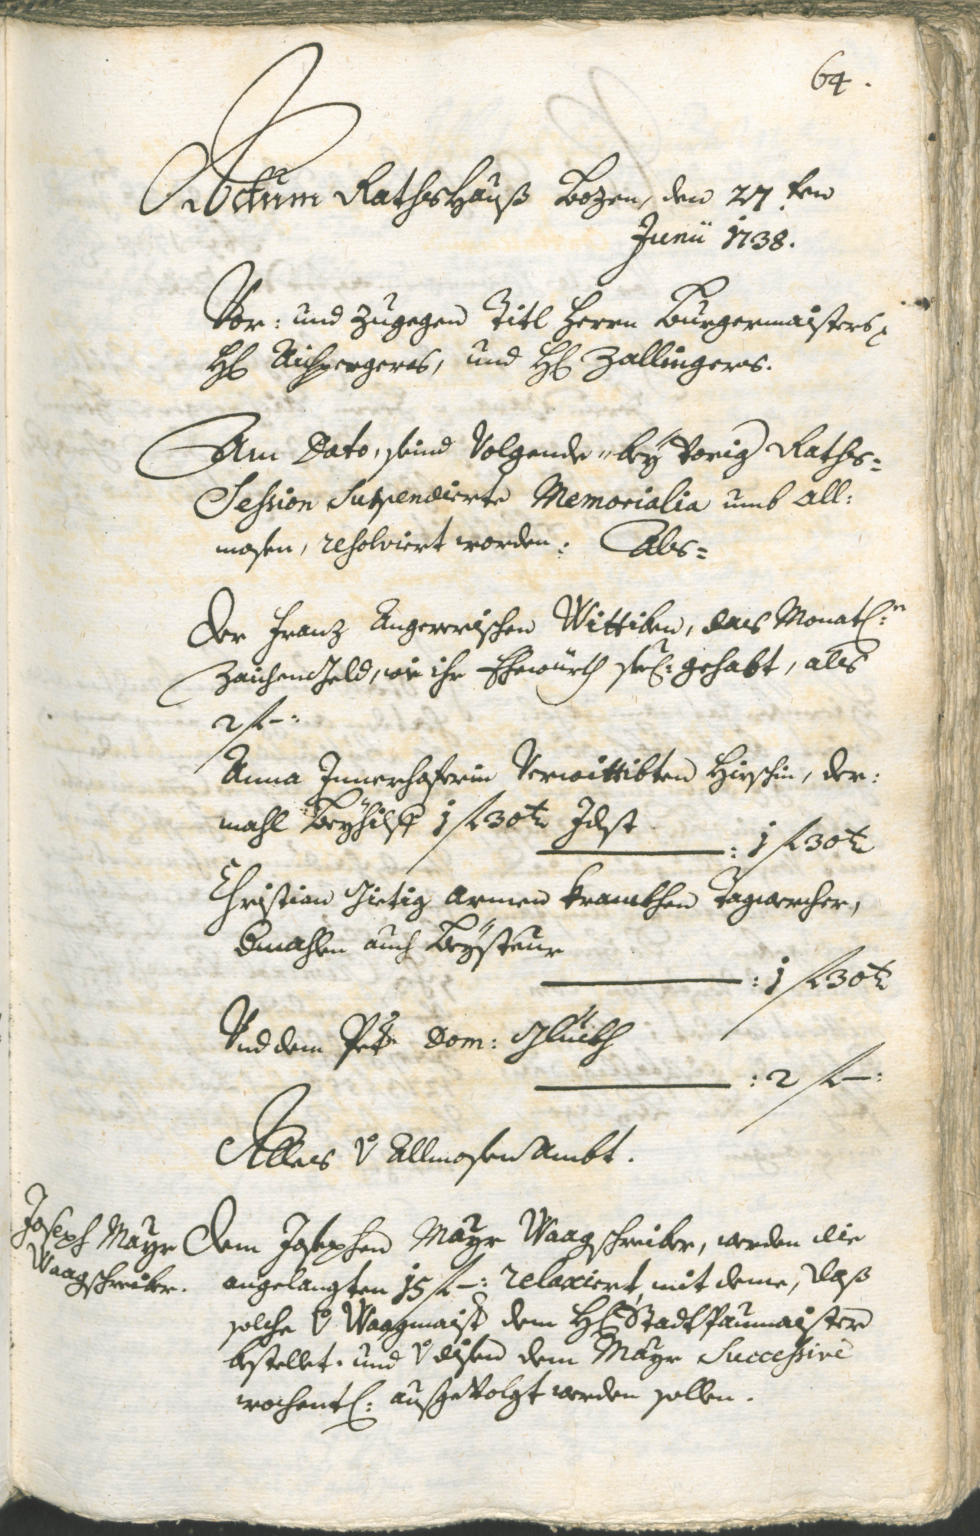 64.
Actum Rathshauß Bozen, den 27.ten
Junii 1738.
Vor: und zugegen Titl Herrn Burgermaisters,
H: Aichpergers, und H: Zallingers.
Am Dato, seind Volgende, bey Vorig Raths=
Session Suspendierte Memorialia umb all:
mosen, resolviert worden: Als=
Der Franz Angererischen Wittiben, das Monatl:n
Zaichengeld, wie ihr Ehewürth see: gehabt, als
2 f –:
Anna Innerhoferin Verwittibten Hirschin, der:
mahl Beyhilf 1 f 30 kr Idest
: 1 f 30 kr
Christian armen krankhen Tagwercher,
dmahlen auch Beysteur
: 1 f 30 kr
Und dem Dom: Glückh
: 2 f –:
Alles v Allmosen Ambt.
Joseph Mayr
Waagschreiber.
Dem Josephen Mayr Waagschreiber, werden die
angelangten 15 f –: relaxiert, mit deme, daß
solche v Waagmaist dem H: Stadtpaumaister
bestellet. und v disem dem Mayr Successive
wochentl: außgevolgt werden sollen.